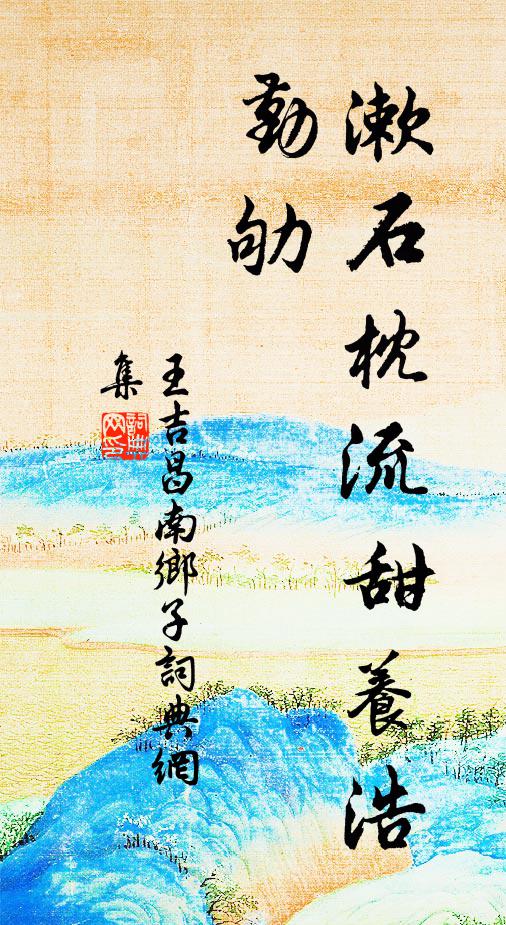 漱石枕流甜養浩
勤劬
王吉昌南鄉子詞典網
集
詞典網印